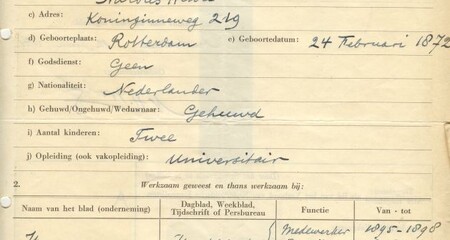 c) Adres: Koninginneweg 219
d) Geboorteplaats: Rotterdam e) Geboortedatum: 24 Februari 1872
f) Godsdienst: Geen
g) Nationaliteit: Nederlander
h) Gehuwd/Ongehuwd/Weduwnaar: Gehuwd
i) Aantal kinderen: Twee
j) Opleiding (ook vakopleiding): Universitair
2. Werkzaam geweest en thans werkzaam bij:
Naam van het blad (onderneming) Dagblad, Weekblad, Tijdschrift of Persbureau Functie Van - tot
Medewerker 1895-1898